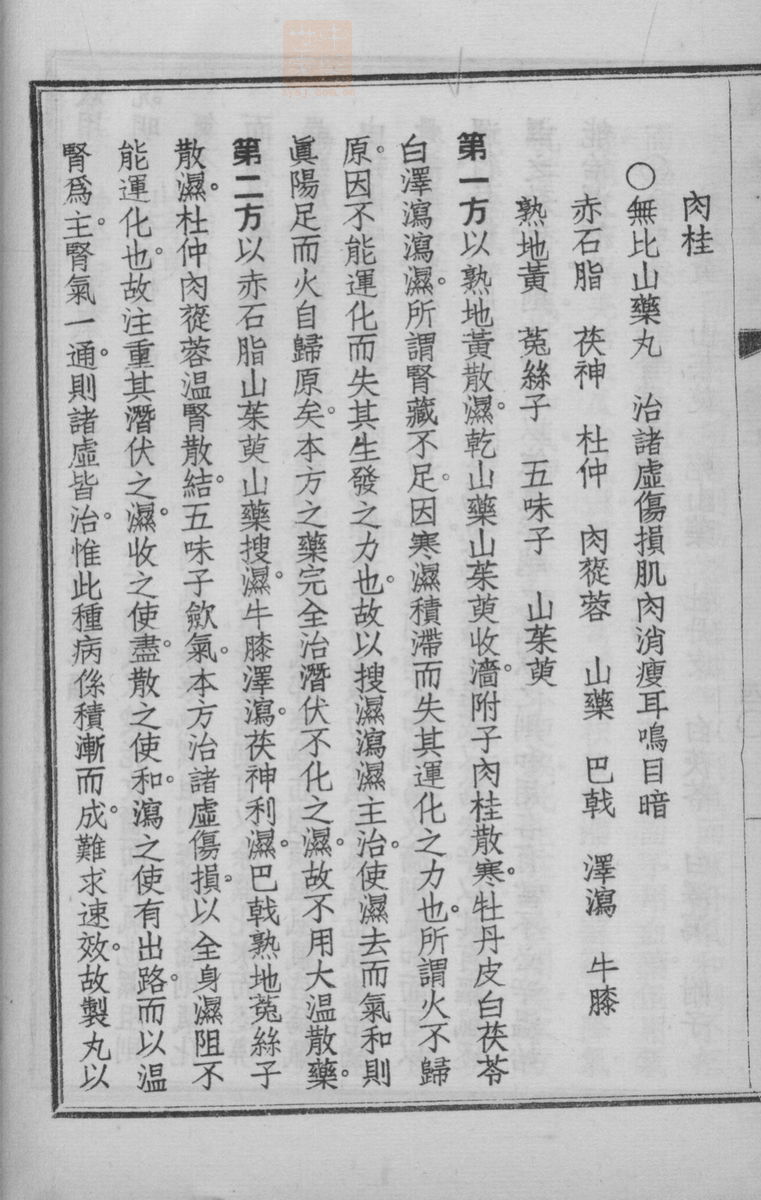 肉桂
○無比山藥丸　治諸虛傷損肌肉消瘦耳鳴目暗
赤石脂　茯神　杜仲　肉蓯蓉　山藥　巴戟　澤瀉　牛膝
熟地黃　菟絲子　五味子　山茱萸
第一方以熟地黃散濕。乾山藥山茱萸收濇。附子肉桂散寒。牡丹皮白茯苓
白澤瀉瀉濕。所謂腎藏不足。因寒濕積滯而失其運化之力也。所謂火不歸
原。因不能運化而失其生發之力也。故以搜濕瀉濕主治。使濕去而氣和則
眞陽足而火自歸原矣。本方之藥完全治潛伏不化之濕。故不用大温散藥。
第二方以赤石脂山茱萸山藥搜濕。牛膝澤瀉。茯神利濕。巴戟熟地菟絲子
散濕。杜仲肉蓯蓉温腎散結。五味子歛氣。本方治諸虛傷損。以全身濕阻不
能運化也。故注重其潛伏之濕。收之使盡。散之使和。瀉之使有出路。而以温
腎爲主。腎氣一通。則諸虛皆治。惟此種病係積漸而成。難求速效。故製丸以